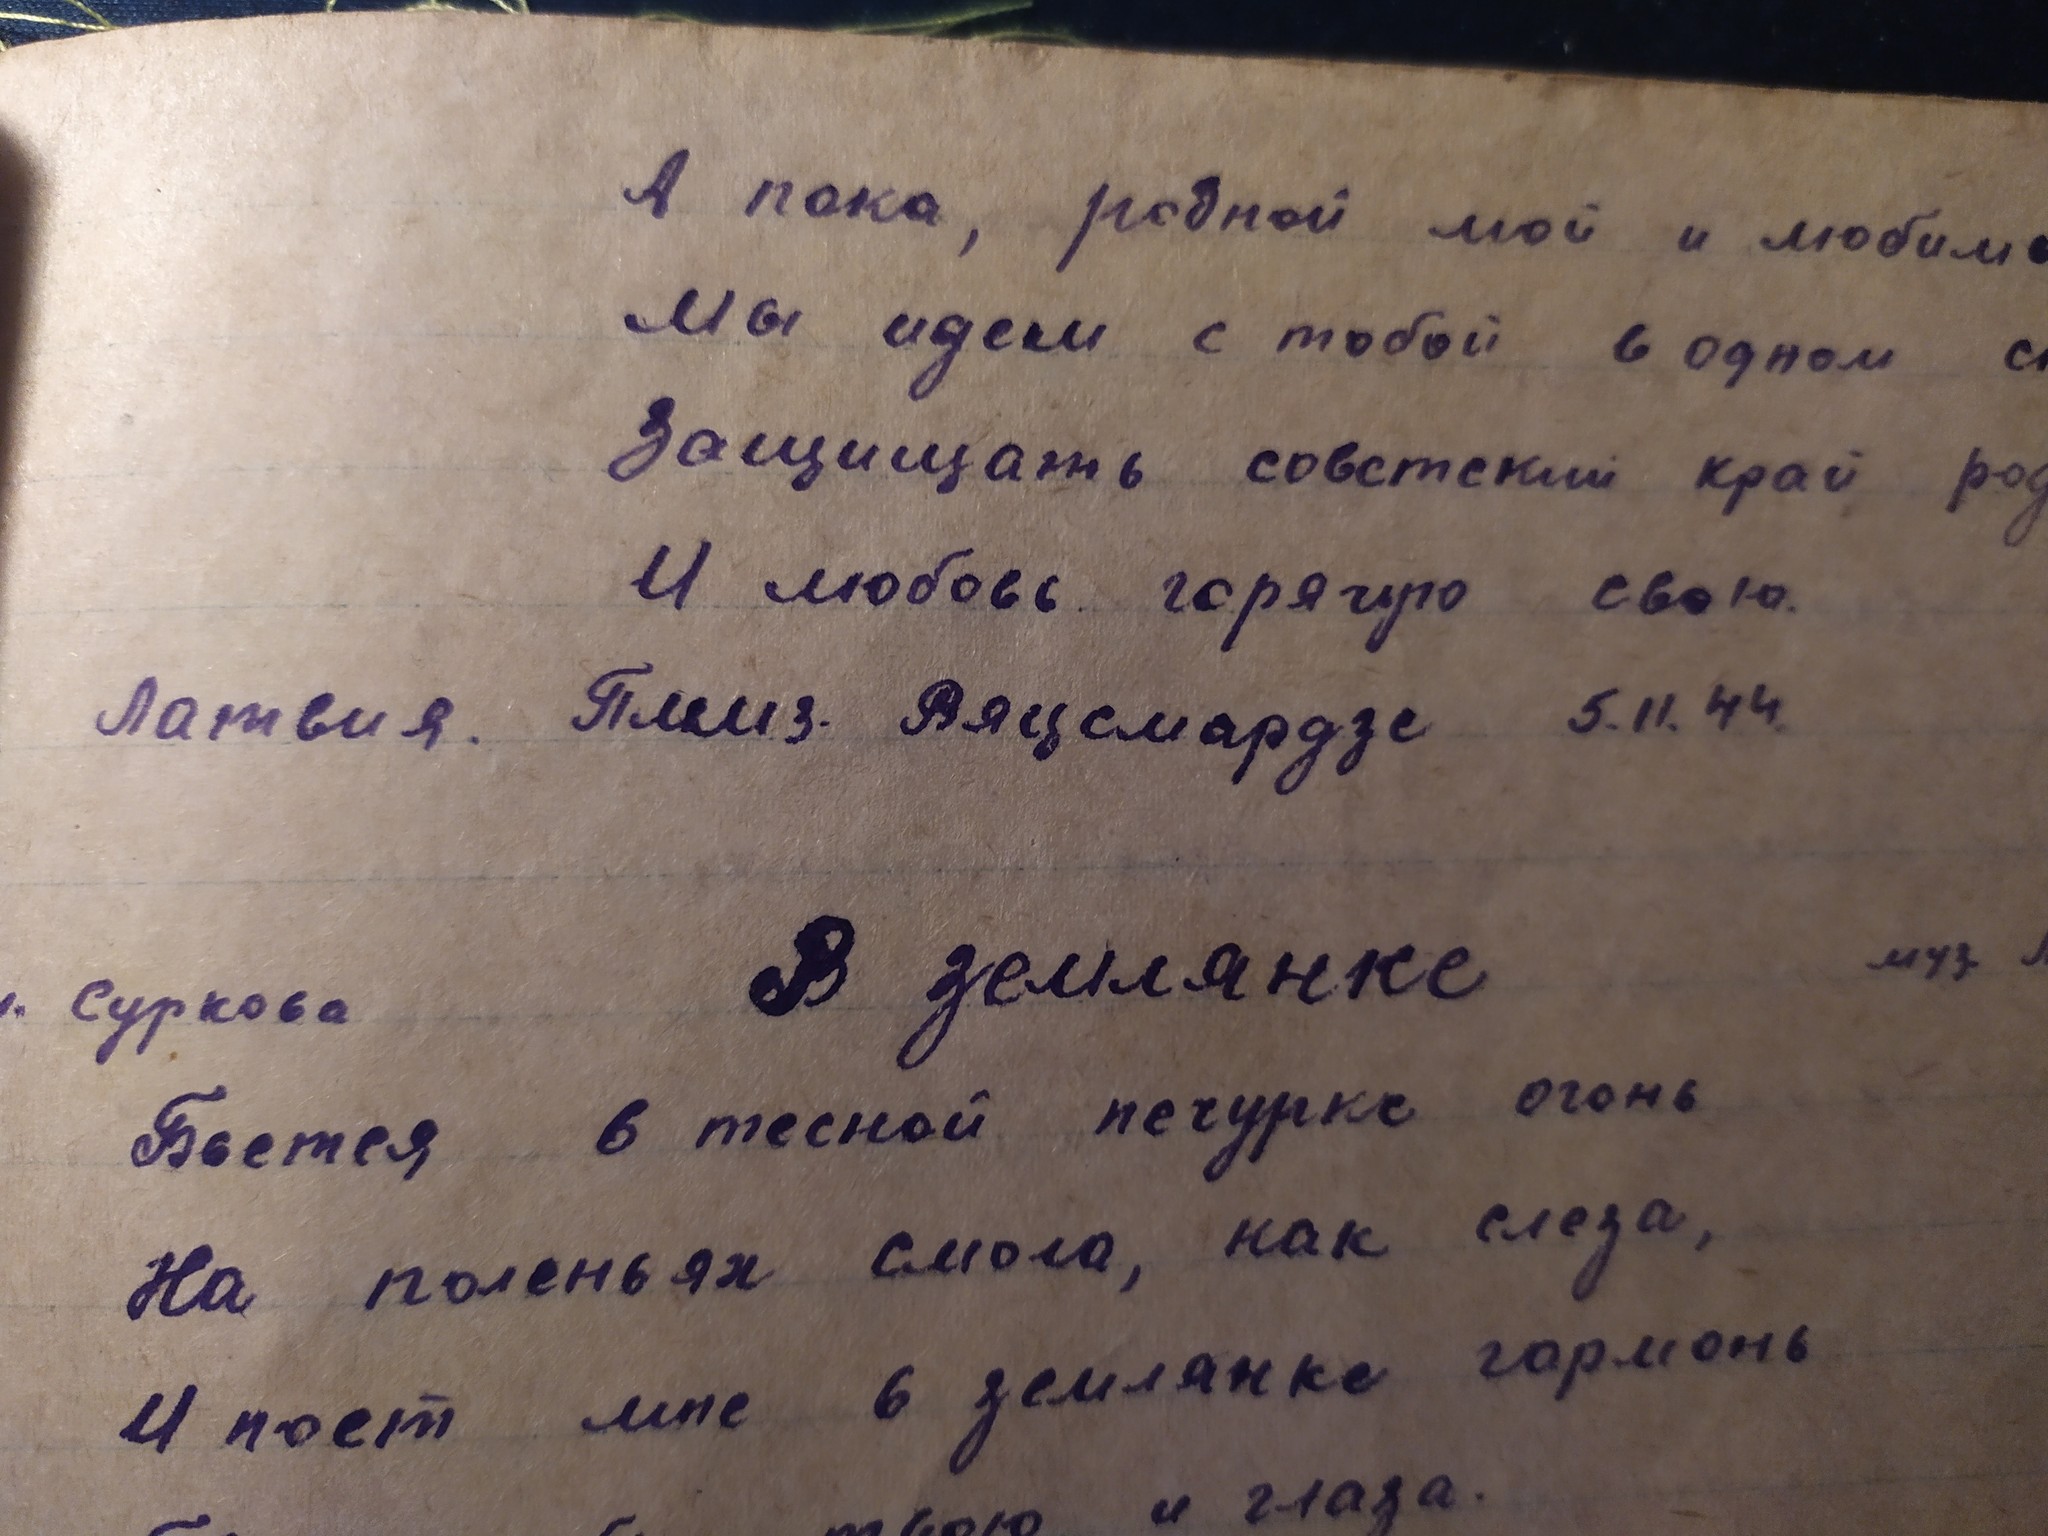 А пока, родной мой и любимо
Мы идем с тобой в одном
Защищать советский край род
И любовь горячую свою.
Латвия. Вяцемардзе 5.11.44.
Суркова В землянке муз
Бьется в тесной печурке огонь
На поленьях смола, как слеза,
И поет мне в землянке гармонь
твою и глаза.